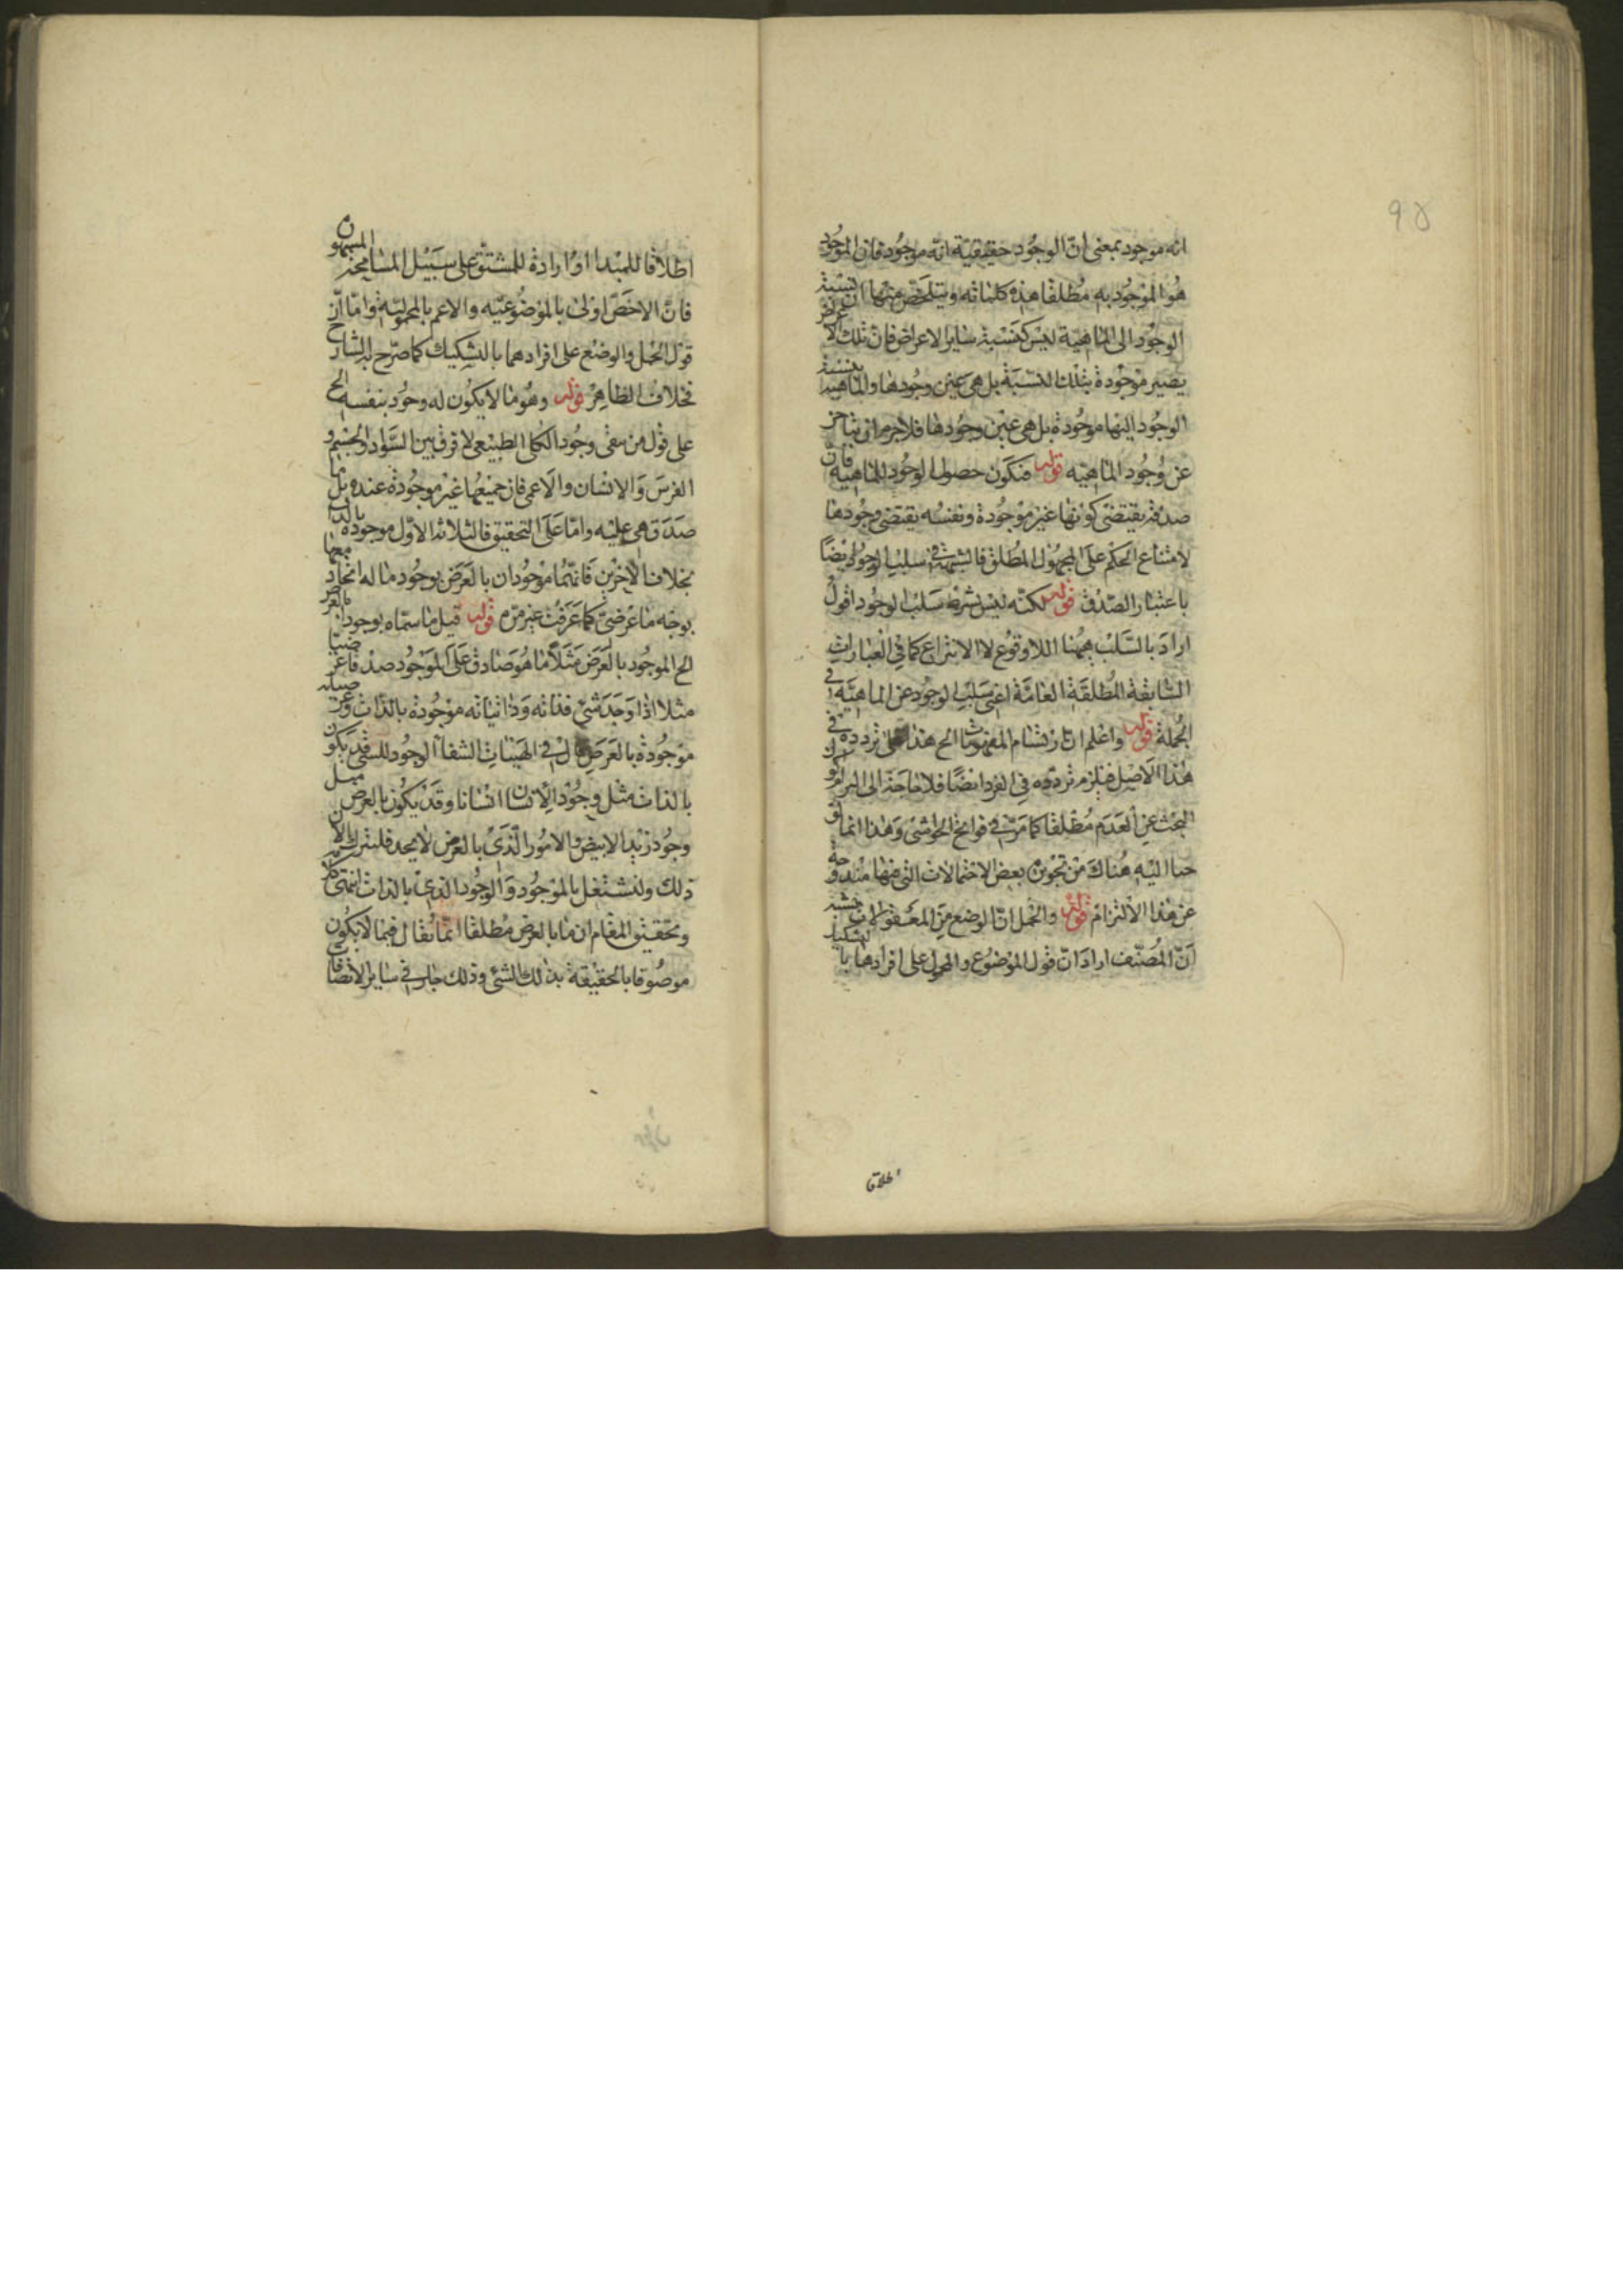 ٩٥
انه موجود بمعنى ان الوجود حقيقية انه موجود فان الموجود
هو الموجود به مطلقا هذه كلماته ويتلخص منها ان نسبة
الوجود الى الماهية ليس كنسبة ساير الاعراض فان تلك الاعراض
يصير موجودة بتلك النسبة بل هى عين وجودها والماهية بنسبة
الوجود اليها موجودة بل هى عين وجودها فلا جرم ان يتاخر
عن وجود الماهيه قوله فيكون حصول الوجود للماهية فان
صدقه يقتضى كونها غير موجودة ونفسه يقتضى وجودها
لامتناع الحكم على المجهول المطلق فالشبهة فى سلب الوجود ايضا
باعتبار الصدق قوله لكنه ليس بشرط سلب الوجود اقول
اراد بالسلب ههنا اللاوقوع لا الانتزاع كما فى العبارات
السابقة المطلقة العامة اعنى سلب الوجود عن الماهية فى
الجملة قوله واعلم ان ارتسام المفهومات الخ هذا على تردده فى
هذا الاصل فيلزم تردده فى الفرد ايضا فلا حاجة الى
البحث عن العدم مطلقا كما مر فى فواتح الحواشى وهذا انما
اليه هناك من تجويز بعض الاحتمالات التى منها مندوحة
عن هذا الالتزام قوله والحمل ان الوضع من المعقولات
ان المصنف اراد ان قول الموضوع والمحمول على افرادها بالتشكيك
اطلاقا
اطلاقا للمبدا او ارادة للمشتق على سبيل المسامحة
فان الاخص اولى بالموضوعيه والاعم بالمحمولية واما ان
قول الحمل والوضع على افرادهما بالتشكيك كما صرح به الشارح
فخلاف الظاهر قوله وهو ما لا يكون له وجود بنفسه الخ
على قول من نفى وجود الكلى الطبيعى لا فرق بين السواد والجسم و
الفرس والانسان والاعمى فان جميعها غير موجودة عنده بل ما
صدق هى عليه واما على التحقيق فالثلاثة الاول موجودة بالذات
بخلاف الاخرين فانهما موجودان بالعرض بوجود ما له اتحاد معهما
بوجه ما عرضى كما عرفت غير مرة قوله قيل ما سماه بوجود بالعرض
الخ الموجود بالعرض مثلا ما هو صادق على الموجود صدقا عرضيا
مثلا اذا وجد شئ فذاته وذاتياته موجودة بالذات وعرضياته
موجودة بالعرض قال فى الهيات الشفا الوجود للشئ قد يكون
بالذات مثل وجود الانسان انسانا وقد يكون بالعرض مثل
وجود زيد الابيض والامور الذى بالعرض لا يحد فلنترك الان
ذلك ولنشتغل بالموجود والوجود الذى بالذات انتهى
وتحقيق المقام ان ما بالعرض مطلقا انما يقال فيما لا يكون
موصوفا بالحقيقة بذلك الشئ وذلك جار فى ساير الاتصافات